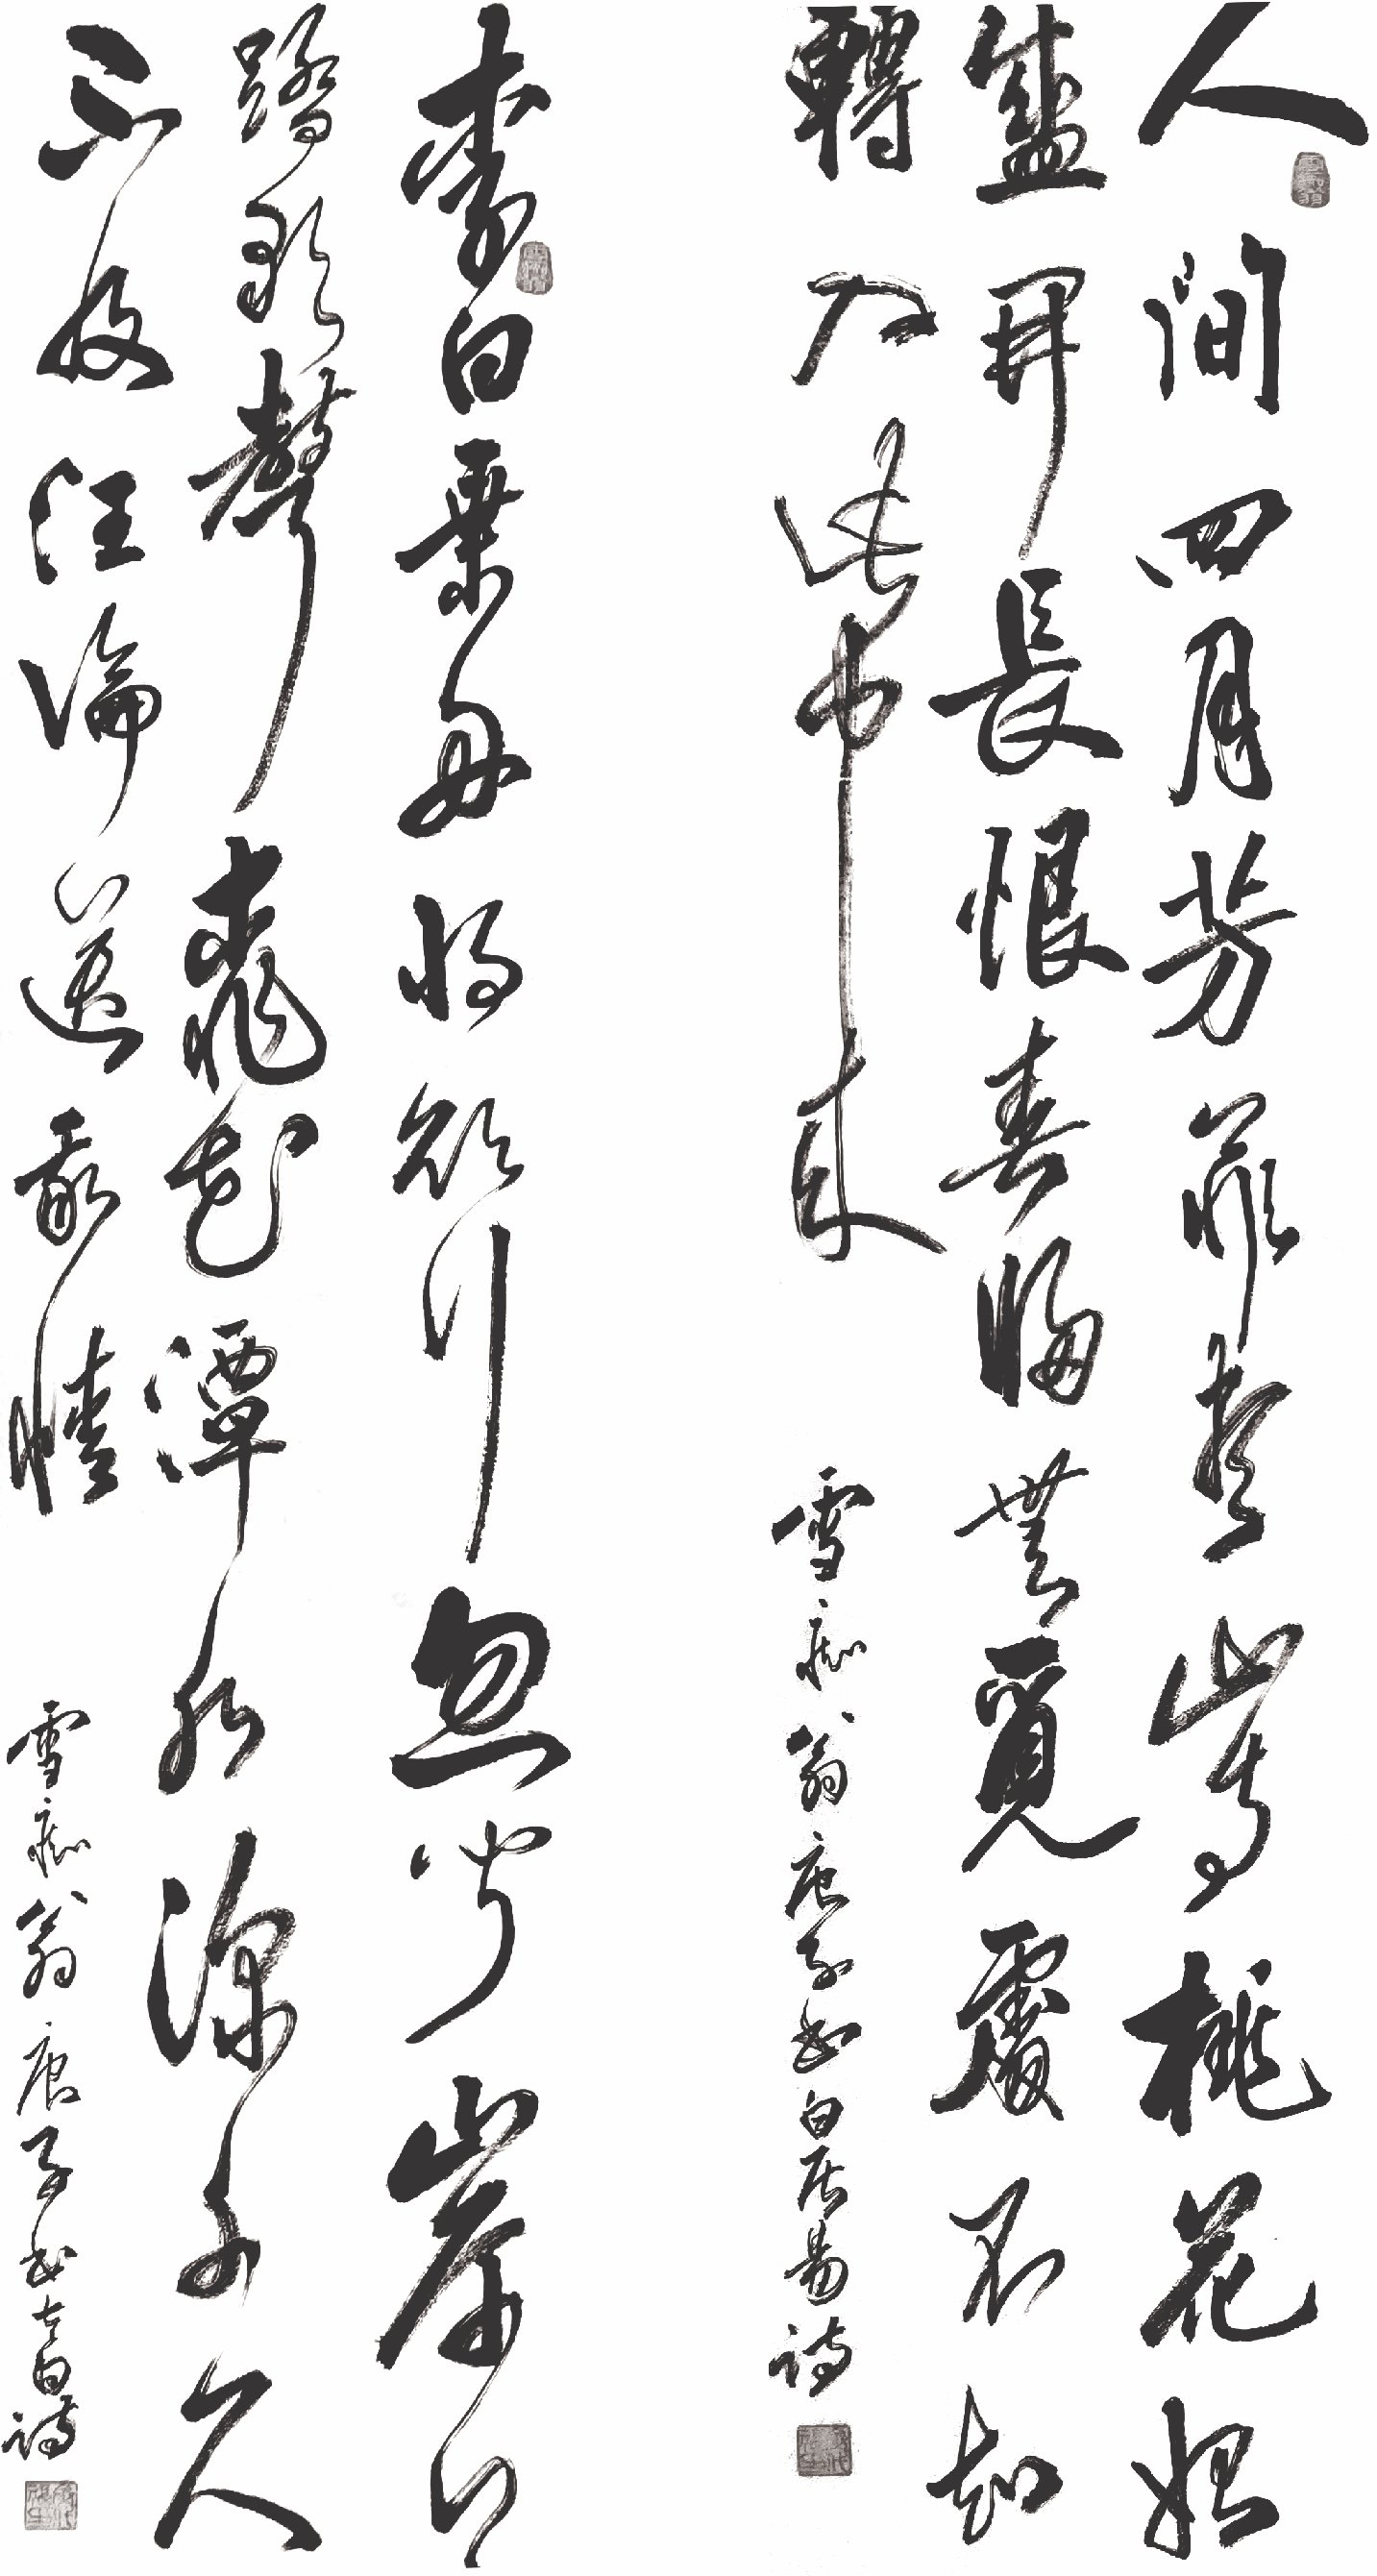 人間四月芳菲盡山寺桃花始
盛開長恨春歸無覓處不知
轉入此中來
雪痴翁庚子书白居易詩
李白乘舟将欲行忽聞岸上
踏歌聲桃花潭水深千尺
不及汪倫送我情
雪痴翁庚子书李白詩